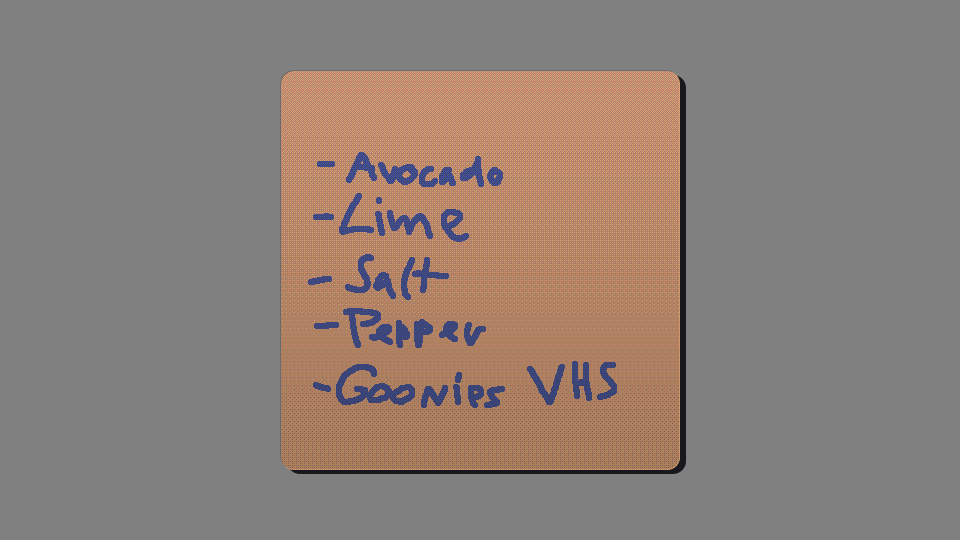 - Avocado
- Lime
- Salt
- Pepper
- Goonies VHS